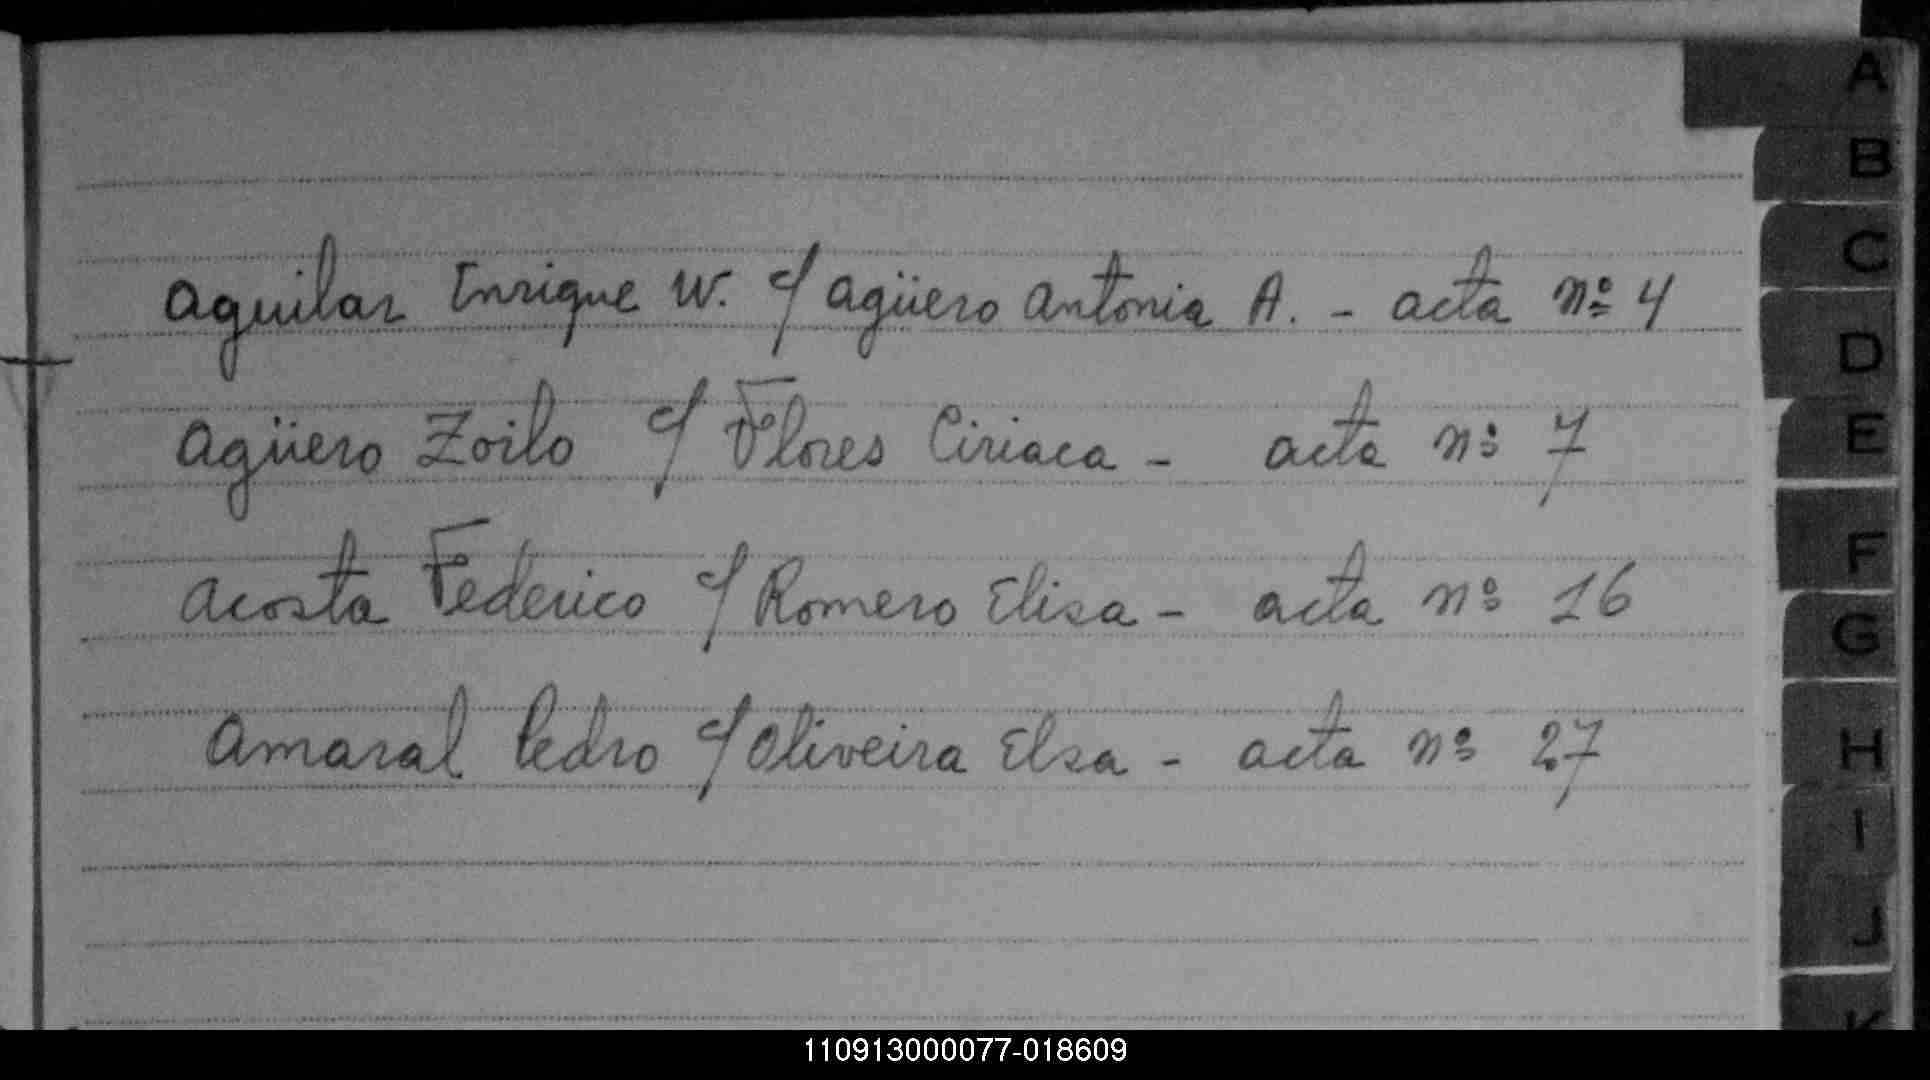 A
B
Aguilar Enrique W. c/ Agüero Antonia A. - acta nº 4
C
D
Agüero Zoilo c/ Flores Ciriaca - acta nº 7
E
F
Acosta Federico c/ Romero Elisa - acta nº 16
G
Amaral Pedro c/ Oliveira Elsa - acta nº 27
H
I
J
K
110913000077-018609